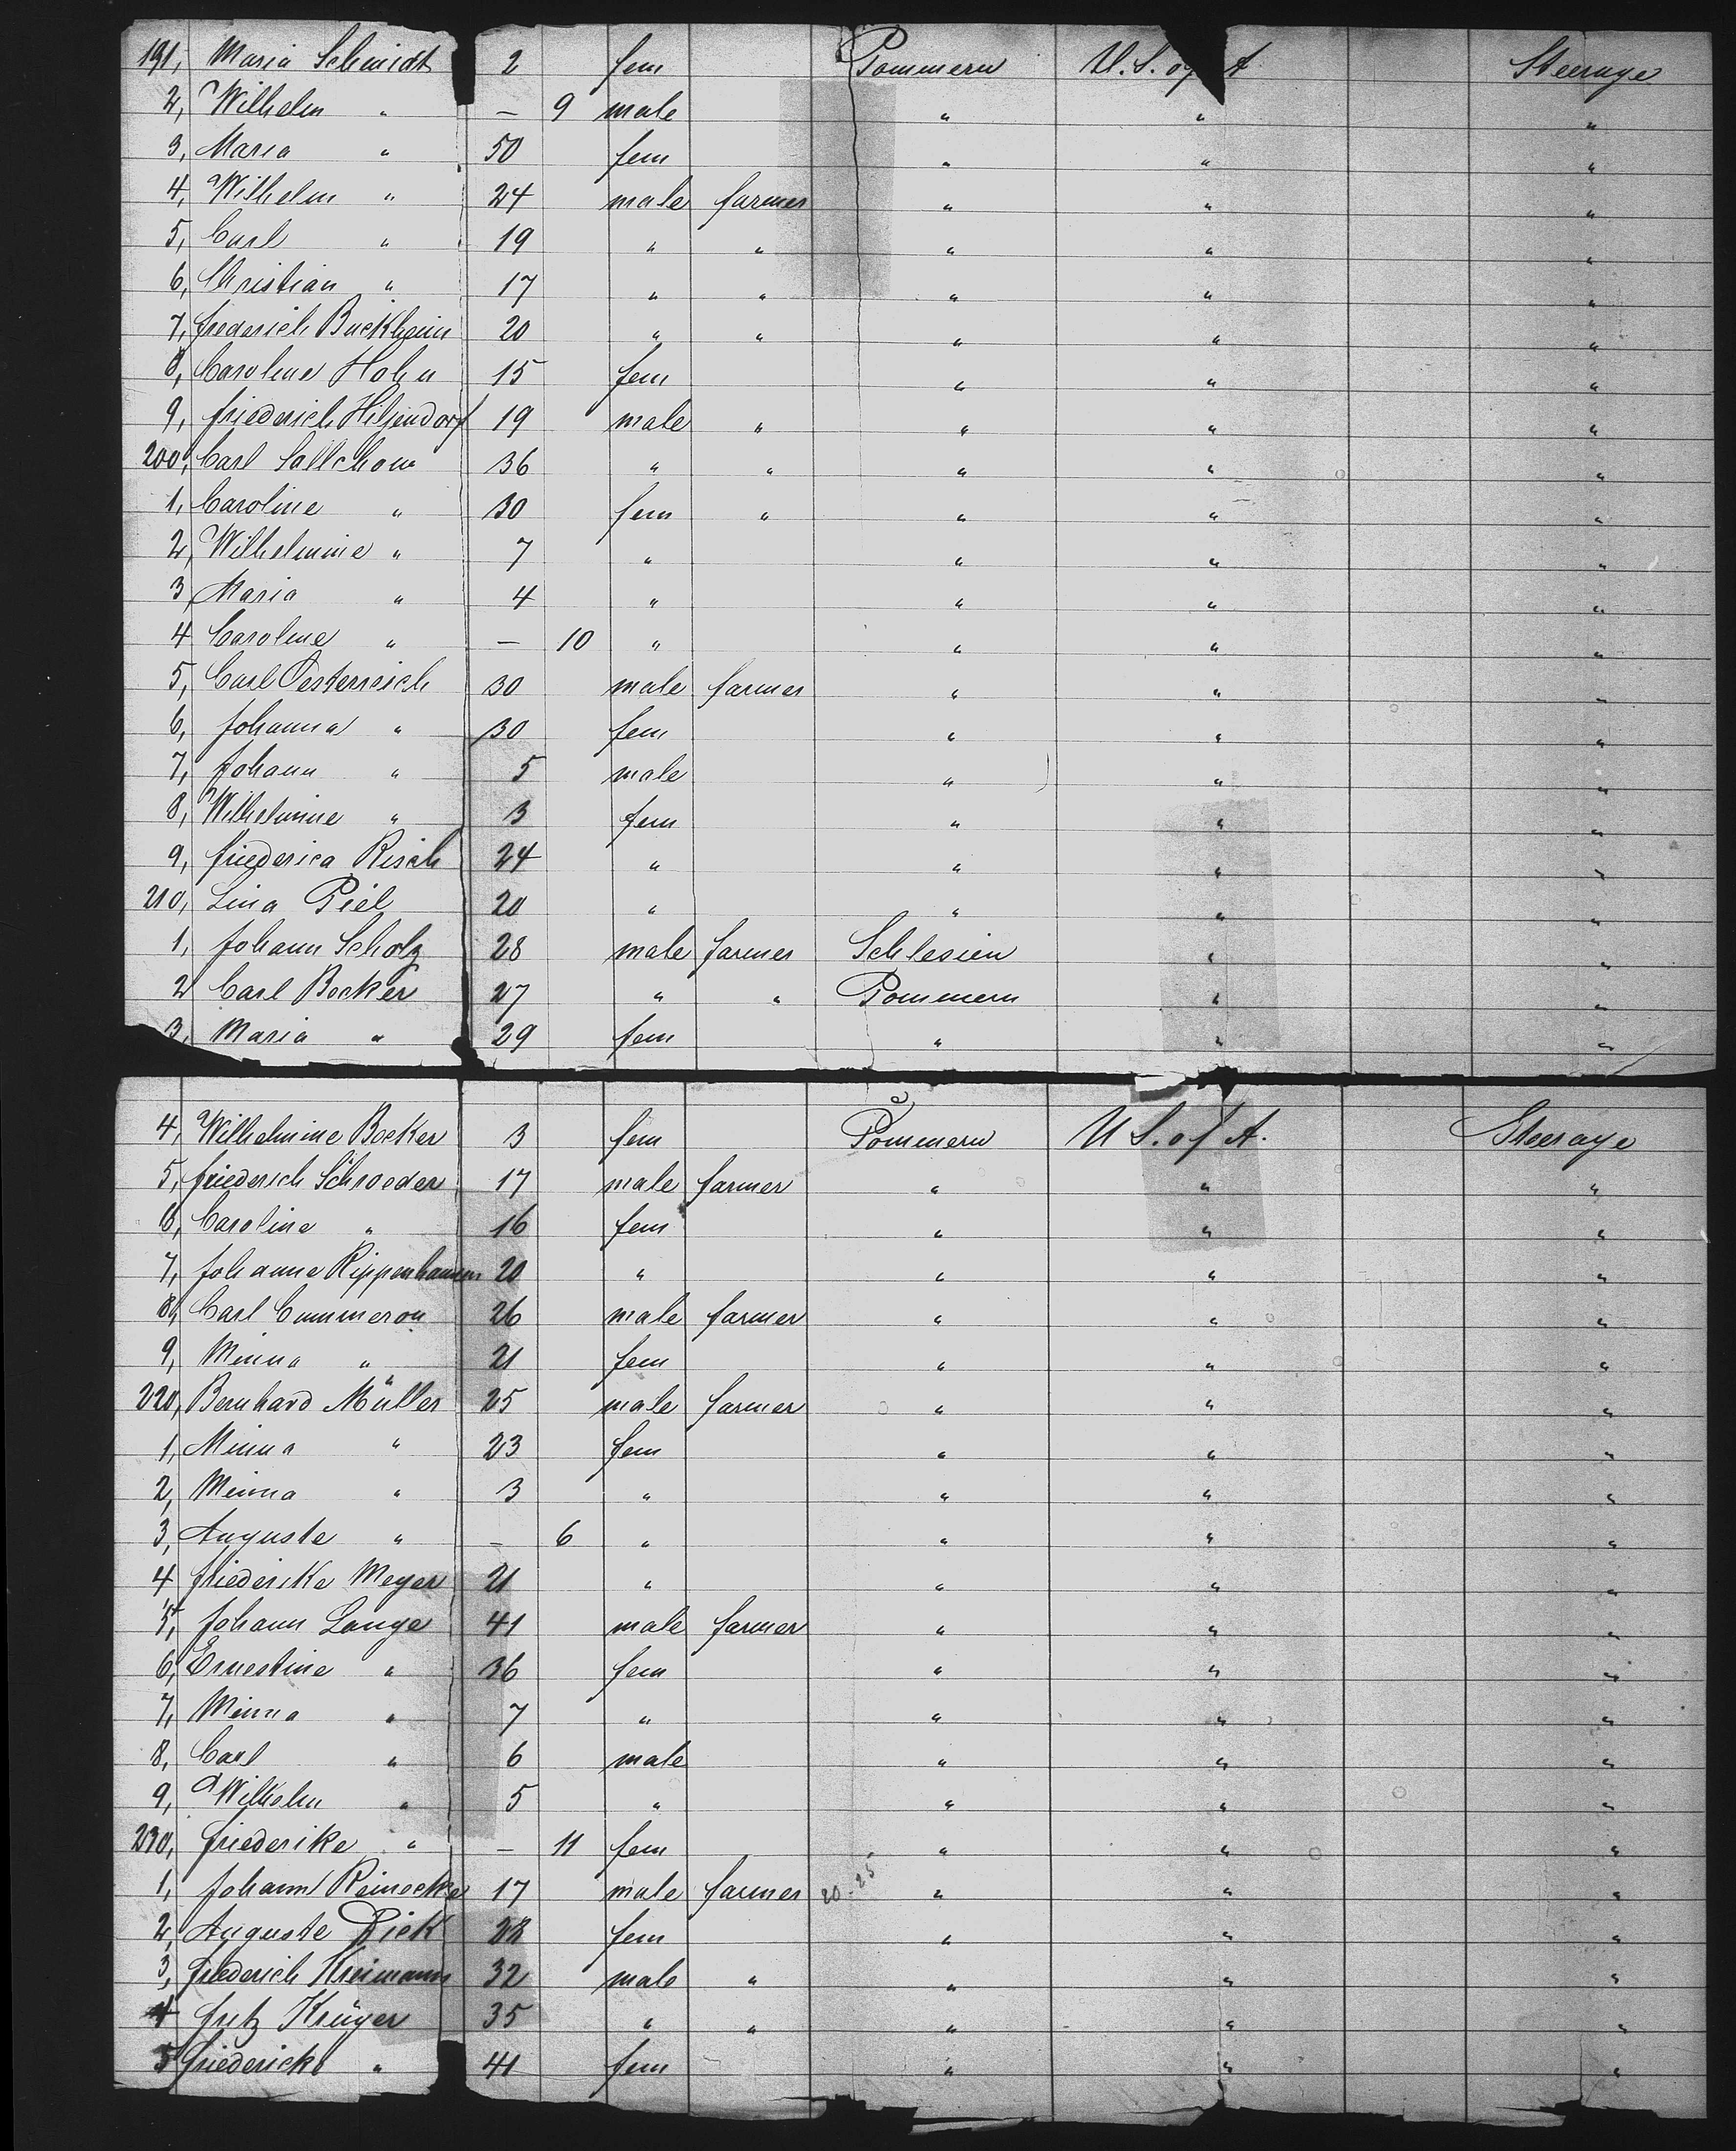 191, Maria Schmidt 2 fem Pommern U.S. of A Steerage
2, Wilhelm " — 9 male " " "
3, Maria " 50 fem " " "
4, Wilhelm " 24 male farmer " " "
5, Carl " 19 " " " " "
6, Christian " 17 " " " " "
7, Frederich Buckheim 20 " " " " "
8, Caroline Hohn 15 fem " " "
9, Friederich Hiljendorf 19 male " " " "
200, Carl Sallchow 36 " " " " "
1, Caroline " 30 fem " " " "
2, Wilhelmine " 7 " " " "
3, Maria " 4 " " " "
4 Caroline " — 10 " " " "
5, Carl Oesterreich 30 male farmer " " "
6, Johanna " 30 fem " " "
7, Johann " 5 male " " "
8, Wilhelmine " 3 fem " " "
9, Friederica Risch 24 " " " "
210, Lina Piel 20 " " " "
1, Johann Scholz 28 male farmer Schlesien " "
2 Carl Becker 27 " " Pommern " "
3, Maria " 29 fem " " "
4, Wilhelmine Becker 3 fem Pommern U S. of A. Steerage
5, Friederich Schroeder 17 male farmer " " "
6, Caroline " 16 fem " " "
7, Johanna Rippenhamm 20 " " " "
8, Carl Cummerow 26 male farmer " " "
9, Minna " 21 fem " " "
220, Bernhard Müller 25 male farmer " " "
1, Minna " 23 fem " " "
2, Minna " 3 " " " "
3, Auguste " — 6 " " " "
4, Friederike Meyer 21 " " " "
5, Johann Lange 41 male farmer " " "
6, Ernestine " 36 fem " " "
7, Minna " 7 " " " "
8, Carl " 6 male " " "
9, Wilhelm " 5 " " " "
230, Friederike " — 11 fem " " "
1, Johann Reinecke 17 male farmer 20-25 " " "
2, Auguste Dick 28 fem " " "
3, Friederich Kreimann 32 male " " " "
4 Fritz Krüger 35 " " " " "
5 Friedericke " 41 fem " " "